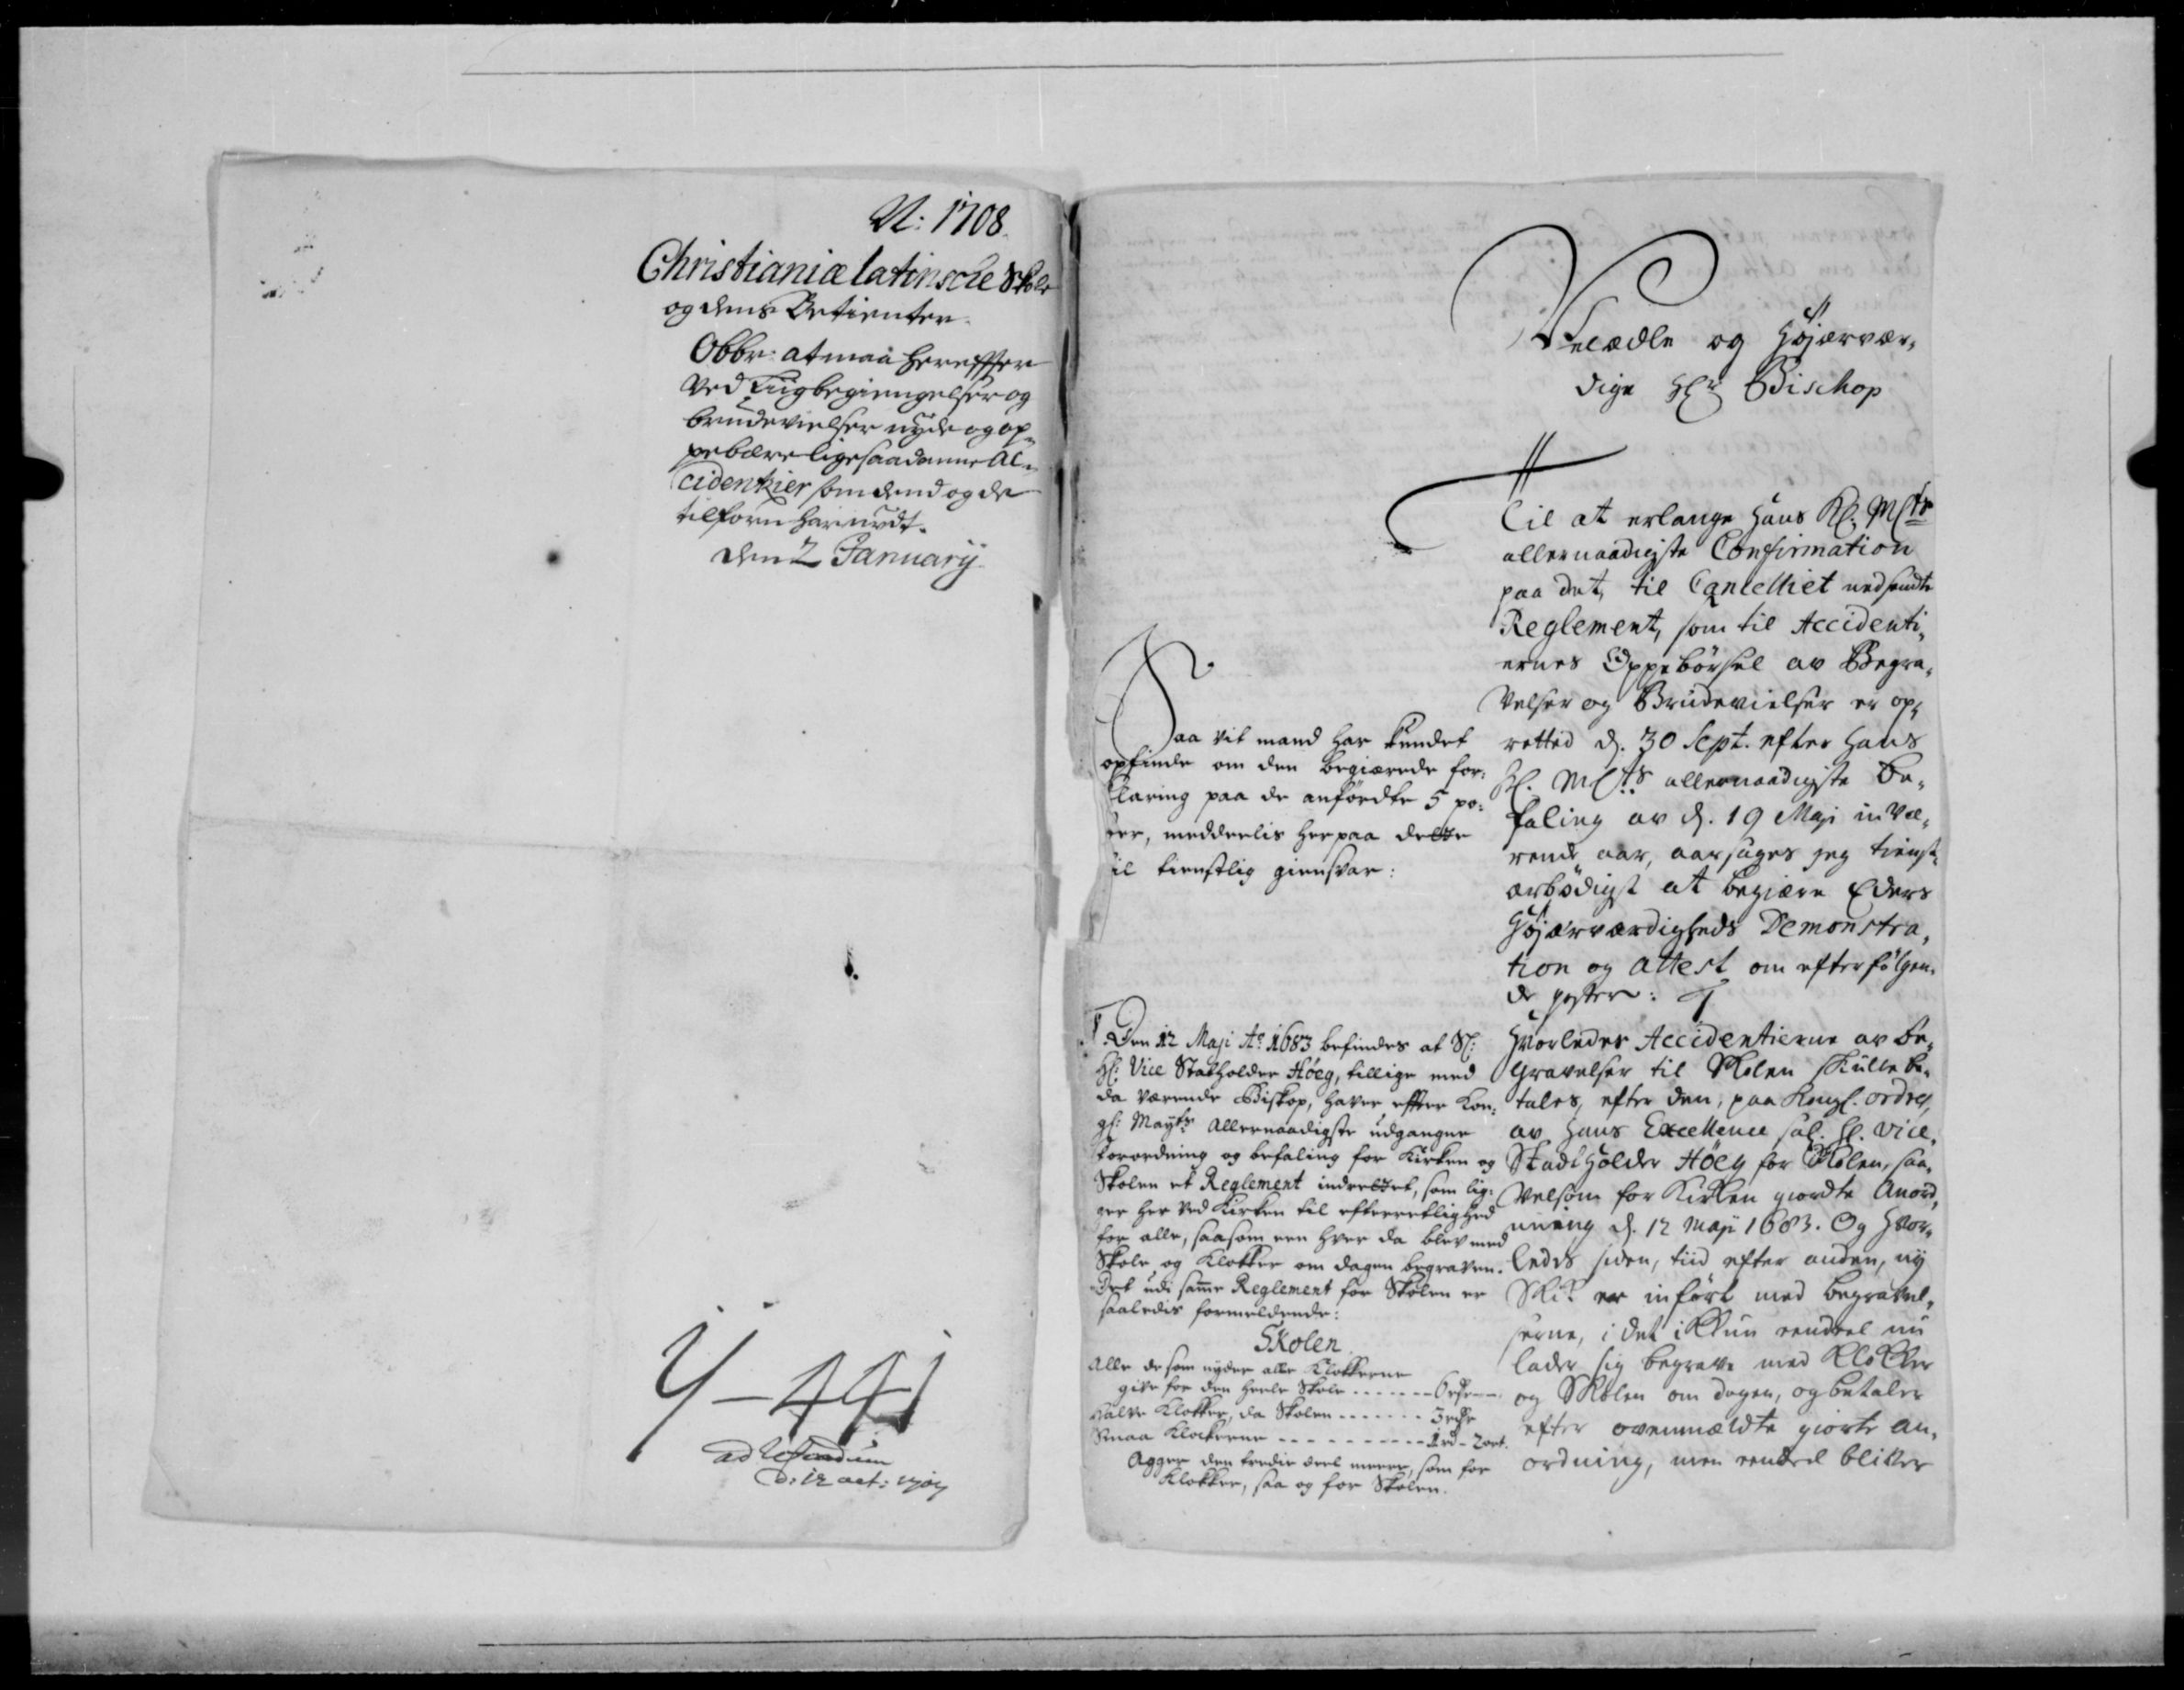 N: 1708.
Christianiæ latinsche Skole
og dens Betienter.
Obbr: at maa hereffter
ved Liigbegiengelser og
brudevielser nyde og op„
pebære lige saadanne Ac„
cidentzier som dend og de
tilforn har nydt.
den 2 January
Y-441
ad referendum
d: 12 oct: 1707
Velædle og Højærvær„
dige Hr Bischop
Til at erlange Hans Kl: Mts
allernaadigste Confirmation
paa det, til Cancelliet nedsendte
Reglement, som til Accidenti„
ernes Oppebörsel av Begra„
velser og Brudevielser er op„
retted d. 30 Sept. efter Hans
Kl. Mts allernaadigste Be„
faling av d. 19 Maji inVæ„
rende aar, aarsages jeg tienst„
ærbödigst at begiære Eders
Højærværdigheds Demonstra„
tion og attest om efterfölgen„
de poster:
Hvorledes Accidentierne av Be„
gravelser til Skolen skulle be„
tales, efter den, paa Kongl. ordre,
av Hans Excellence sal. Hr. Vice„
Stadtholder Höeg for Skolen, saa„
velsom for Kirken giordte Anord„
ning d. 12 Maji 1683. Og hvor„
ledes siden, tiid efter anden, ny
Skik er infört med begravel„
serne, i det ikkun eendeel nu
lader sig begrave med Klokker
og Skolen om dagen, og betaler
efter ovenmældte giorte an„
ordning, men eendeel bliver
Saa vit mand har kundet
opfinde om den begiærede for„
klaring paa de anfördte 5 po„
ster, meddeelis herpaa dette
til tienstlig giensvar:
1. Den 12 Maji Ao 1683 befindes at Sl:
Hr: Vice Statholder Höeg, tillige med
da værende Biskop, haver effter Kon„
gl: Mayts Allernaadigste udgangne
forordning og befaling for Kirken og
Skolen et Reglement indrettet, som lig„
ger her ved Kirken til efterretlighed
for alle, saasom een hver da blev med
Skole og Klokker om dagen begraven.
Det udi samme Reglement for Skolen er
saaledis formeldende:
Skolen
Alle de som nyder alle Klokkerne
give for den heele Skole ------- 6 rdr ---
Halve Klokker, da Skolen ------- 3 rdr
Smaa Klockerne ---------- 1 rd - 2 ort.
Agger den tredie deel meere, som for
Klokker, saa og for Skolen.